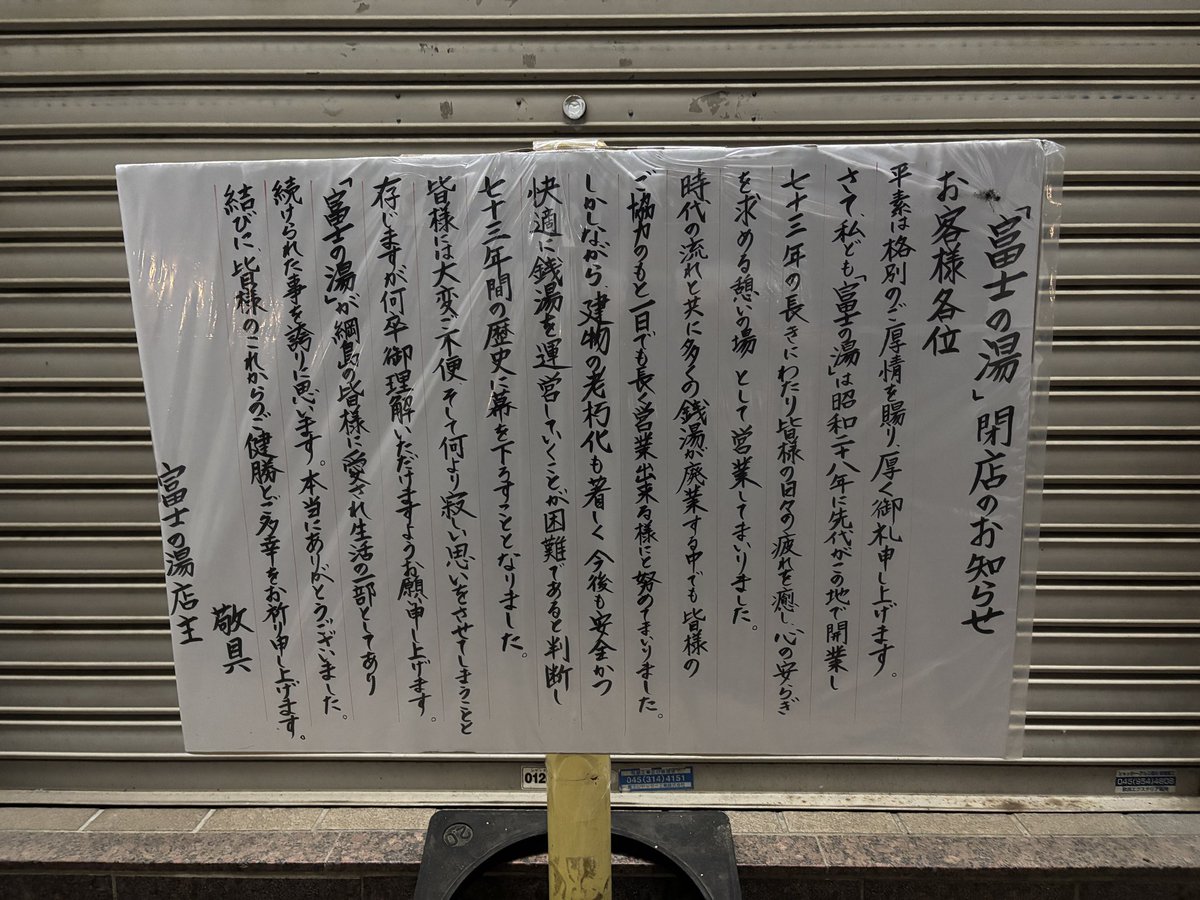 「富士の湯」閉店のお知らせ
お客様各位
平素は格別のご厚情を賜り、厚く御礼申し上げます。
さて、私ども「富士の湯」は昭和二十八年に先代がこの地で開業し
七十三年の長きにわたり皆様の日々の疲れを癒し、心の安らぎ
を求める憩いの場として営業してまいりました。
時代の流れと共に多くの銭湯が廃業する中でも皆様の
ご協力のもと一日でも長く営業出来る様にと努めてまいりました。
しかしながら、建物の老朽化も著しく今後も安全かつ
快適に銭湯を運営していくことが困難であると判断し
七十三年間の歴史に幕を下ろすこととなりました。
皆様には大変ご不便そして何より寂しい思いをさせてしまうことと
存じますが何卒御理解いただけますようお願い申し上げます。
「富士の湯」が綱島の皆様に愛され生活の一部としてあり
続けられた事を誇りに思います。本当にありがとうございました。
結びに、皆様のこれからのご健勝とご多幸をお祈り申し上げます。
敬具
富士の湯店主
012
045(314)4151
045(954)4808
20